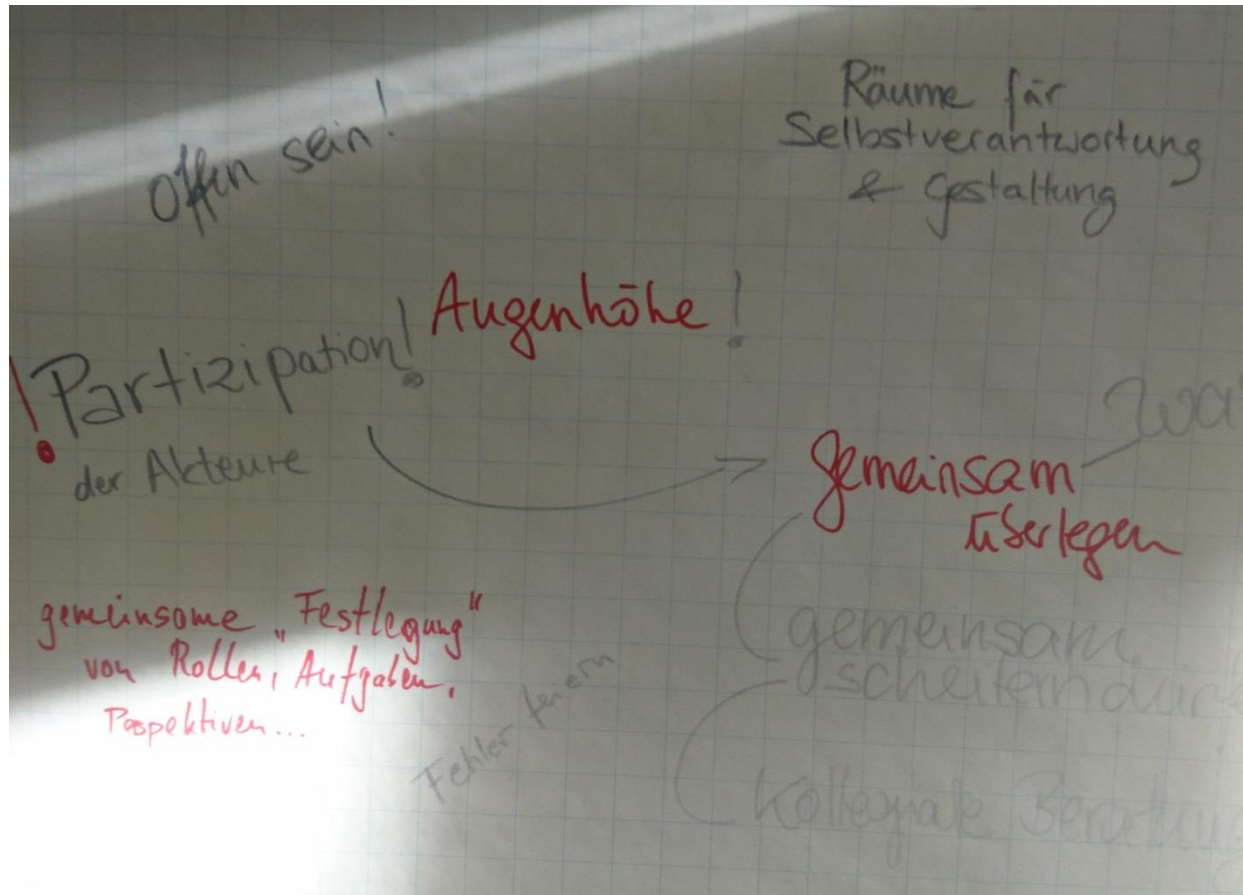 Offen sein!
Räume für
Selbstverantwortung
& Gestaltung
Augenhöhe!
! Partizipation!
der Akteure
gemeinsam
überlegen
gemeinsame „Festlegung“
von Rollen, Aufgaben,
Perspektiven...
Fehler feiern
gemeinsam
scheitern
Kollegiale Beratung